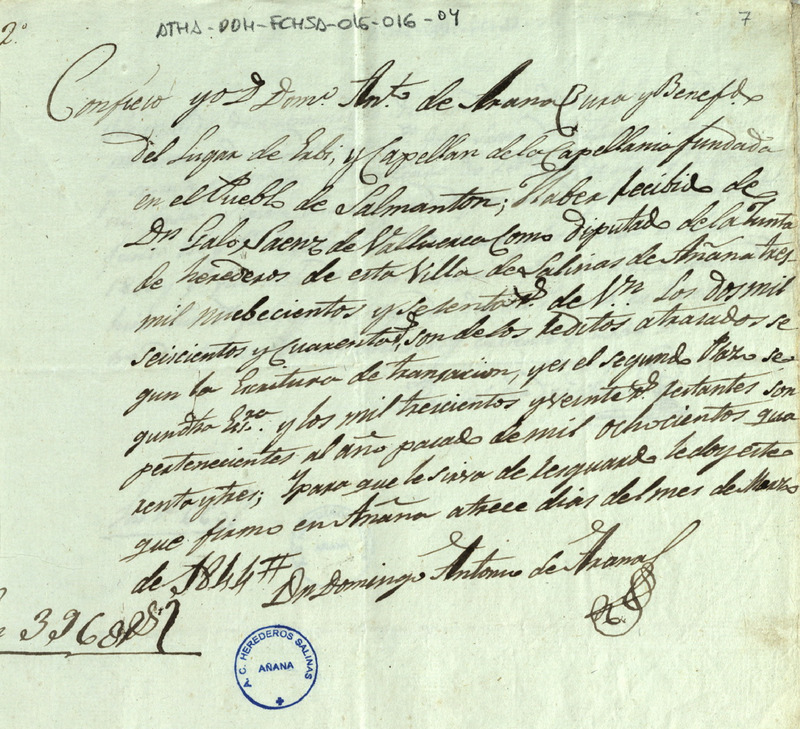 2º
ATHA-DDH-FCHSA-016-016-04
7
Confieso yo D. Domº Antº de Arana Cura y Benefdº
del Lugar de Erbi, y Capellan de la Capellania fundada
en el Pueblo de Salmanton; Haber recibido de
Dn Galo Saenz de Valluerca Como diputado de la Junta
de herederos de esta Villa de Salinas de Añana tres
mil nuebecientos y sesenta rs de Vn los dos mil
seiscientos y cuarenta rs son de los reditos atrasados se
gun la Escritura de transacion, y es el segundo Plazo se
gun dha y los mil trescientos y veinte rs restantes son
pertenecientes al año pasado de mil ochocientos qua
renta y tres; Y para que le sirva de resguardo le doy este
que firmo en Añana a trece dias del mes de Marzo
de 1844 #
Dn Domingo Antonio de Arana
3960 rs
A. C. HEREDEROS SALINAS
AÑANA